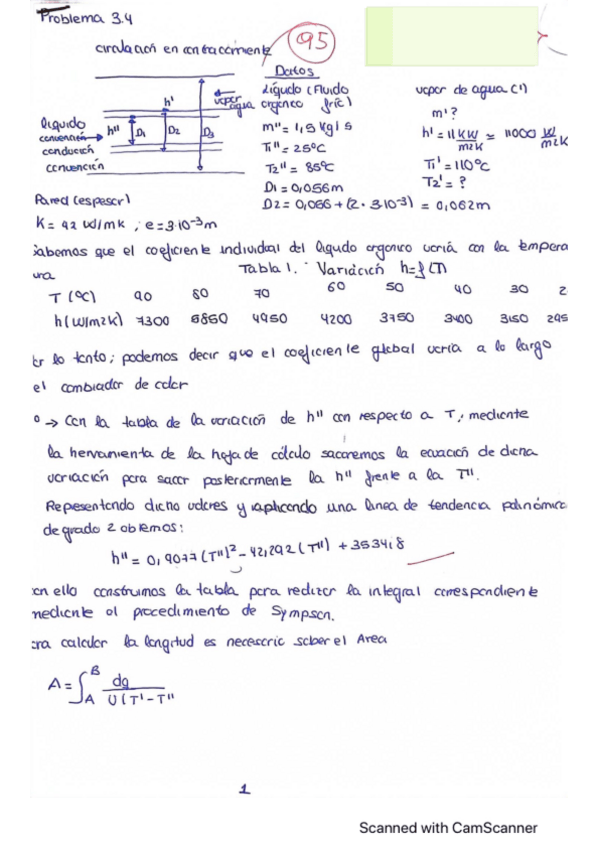 Problema 3.4
circulación en contracorriente
95
Datos
líquido (Fluido
orgánico fríc)
vapor de agua (')
h'
vapor
agua
líquido
convención
conducción
convención
h"
D1
D2
D3
m" = 1,5 kg/s
T1" = 25ºC
T2" = 85ºC
D1 = 0,056m
D2 = 0,056 + (2 · 3·10-3) = 0,062m
m'?
h' = 11 KW/m2K = 11000 W/m2K
T1' = 110ºC
T2' = ?
Pared (espesor)
K = 42 W/mK ; e = 3·10-3 m
Sabemos que el coeficiente individual del líquido orgánico varía con la tempera
ura
Tabla 1. Variación h = f(T)
T (ºC) 90 80 70 60 50 40 30 2
h (W/m2K) 7300 5850 4950 4200 3750 3400 3150 295
or lo tanto; podemos decir que el coeficiente global varía a lo largo
el cambiador de calor
º → Con la tabla de la variación de h" con respecto a T, mediante
la herramienta de la hoja de cálculo sacaremos la ecuación de dicha
variación para sacar posteriormente la h" frente a la T".
Representando dicho valores y aplicando una línea de tendencia polinómica
de grado 2 obtemos:
h" = 0,9077 (T")2 - 42,292 (T") + 3534,8
on ello construimos la tabla para realizar la integral correspondiente
mediante el procedimiento de Sympson.
ara calcular la longitud es necesario saber el Area
A = ∫AB dq / U(T' - T"
1
Scanned with CamScanner